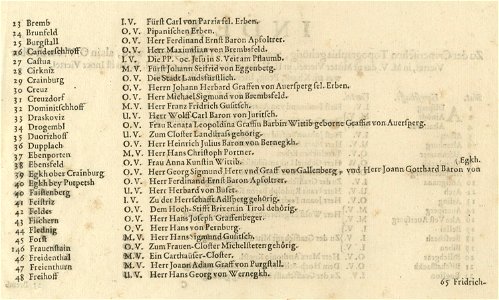 13 Bremb I.V. Fürst Carl von Parria sel. Erben.
14 Brunfeld O.V. Pipanischen Erben.
25 Burgstall O.V. Herr Ferdinand Ernst Baron Apfoltrer.
26 Canderschhoff O.V. Herr Maximilian von Brembsfeld.
27 Castua I.V. Die PP. oc. Jesu in S. Veit am Pflaumb.
28 Cirkniz M.V. Fürst Johann Seifrid von Eggenberg.
29 Crainburg O.V. Die Stadt Landsfürstlich.
30 Creuz O.V. Herrn Johann Herbard Graffen von Auersperg sel. Erben.
31 Creuzdorf O.V. Herr Michael Sigmund von Brembsfeld.
32 Dominischhoff M.V. Herr Franz Fridrich Gusitsch.
33 Draskoviz U.V. Herr Wolff Carl Baron von Juritsch.
34 Drogembl O.V. Frau Renata Leopoldina Graffin Barbin Wittib geborne Graffin von Auersperg.
35 Duorizhoff U.V. Zum Closter Landstrass gehörig.
36 Dupplach O.V. Herr Heinrich Julius Baron von Bernegkh.
37 Ebenporten M.V. Herr Hans Christoph Portner.
38 Ebensfeld O.V. Frau Anna Kunstin Wittib. (Egkh.
39 Egkh ober Crainburg O.V. Herr Georg Sigmund Herr und Graff von Gallenberg, und Herr Joann Gotthard Baron von
40 Egkh bey Putpetsh O.V. Herr Ferdinand Ernst Baron Apfoltrer.
40 Faistenberg U.V. Herr Herbard von Buset.
41 Feistriz I.V. Zu der Herrschafft Adlsperg gehörig.
42 Feldes O.V. Dem Hoch-Stifft Brixen in Tirol gehörig.
43 Fischern O.V. Herr Hans Joseph Graffenberger.
44 Flednig O.V. Herr Hans von Pernberg.
45 Forst M.V. Herr Hans Sigmund Gusitsch.
146 Frauenstain O.V. Zum Frauen-Closter Michelstetten gehörig.
46 Freidenthal M.V. Ein Carthäuser-Closter.
47 Freienthurn M.V. Herr Joann Adam Graff von Purgstall.
48 Freihoff U.V. Herr Hans Georg von Wernegkh.
65 Fridrich-